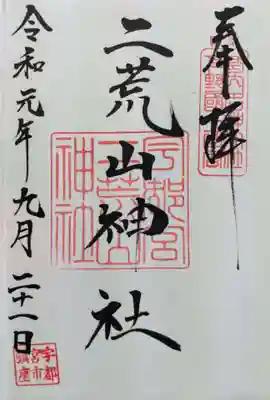 奉拝
二荒山神社
令和元年九月二十一日
宇都宮
二荒山
神社
宇都
宮市
鎮座